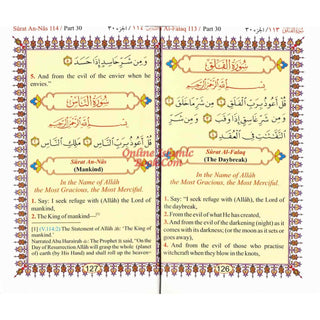 Al-Falaq 113 / Part 30
الجزء ٣٠ / ١١٣
سُورَةُ الفَلَق
بِسْمِ اللَّهِ الرَّحْمَٰنِ الرَّحِيمِ
قُلْ أَعُوذُ بِرَبِّ الْفَلَقِ مِن شَرِّ مَا خَلَقَ
وَمِن شَرِّ غَاسِقٍ إِذَا وَقَبَ وَمِن شَرِّ
النَّفَّٰثَٰتِ فِي الْعُقَدِ
Sûrat Al-Falaq
(The Daybreak)
In the Name of Allâh
the Most Gracious, the Most Merciful.
1. Say: "I seek refuge with (Allâh), the Lord of
the daybreak,
2. From the evil of what He has created,
3. And from the evil of the darkening (night) as it
comes with its darkness; (or the moon as it sets or
goes away),
4. And from the evil of those who practise
witchcraft when they blow in the knots,
126
Sûrat An-Nâs 114 / Part 30
الجزء ٣٠ / ١١٤
وَمِن شَرِّ حَاسِدٍ إِذَا حَسَدَ
5. And from the evil of the envier when he
envies."
سُورَةُ النَّاس
بِسْمِ اللَّهِ الرَّحْمَٰنِ الرَّحِيمِ
قُلْ أَعُوذُ بِرَبِّ النَّاسِ مَلِكِ النَّاسِ
Sûrat An-Nâs
(Mankind)
In the Name of Allâh
the Most Gracious, the Most Merciful.
1. Say: I seek refuge with (Allâh), the Lord of
mankind,
2. The King of mankind—[1]
[1] (V.114:2) The Statement of Allâh: 'The King of
mankind.'
Narrated Abu Hurairah: The Prophet said, "On the
Day of Resurrection Allâh will grasp the whole (planet
of) earth (by His Hand) and shall roll up the heaven
127
Online Islamic
Book.Com